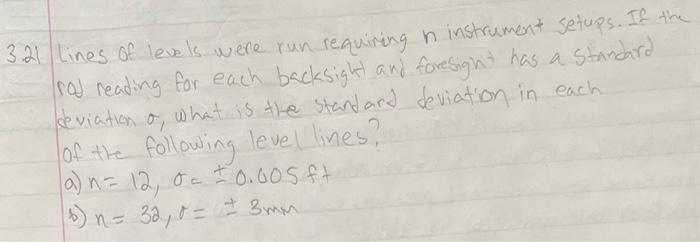 3.21 Lines of levels were run requiring n instrument setups. If the
rod reading for each backsight and foresight has a standard
deviation σ, what is the standard deviation in each
of the following level lines?
a) n = 12, σ = ± 0.005 ft
b) n = 32, σ = ± 3mm